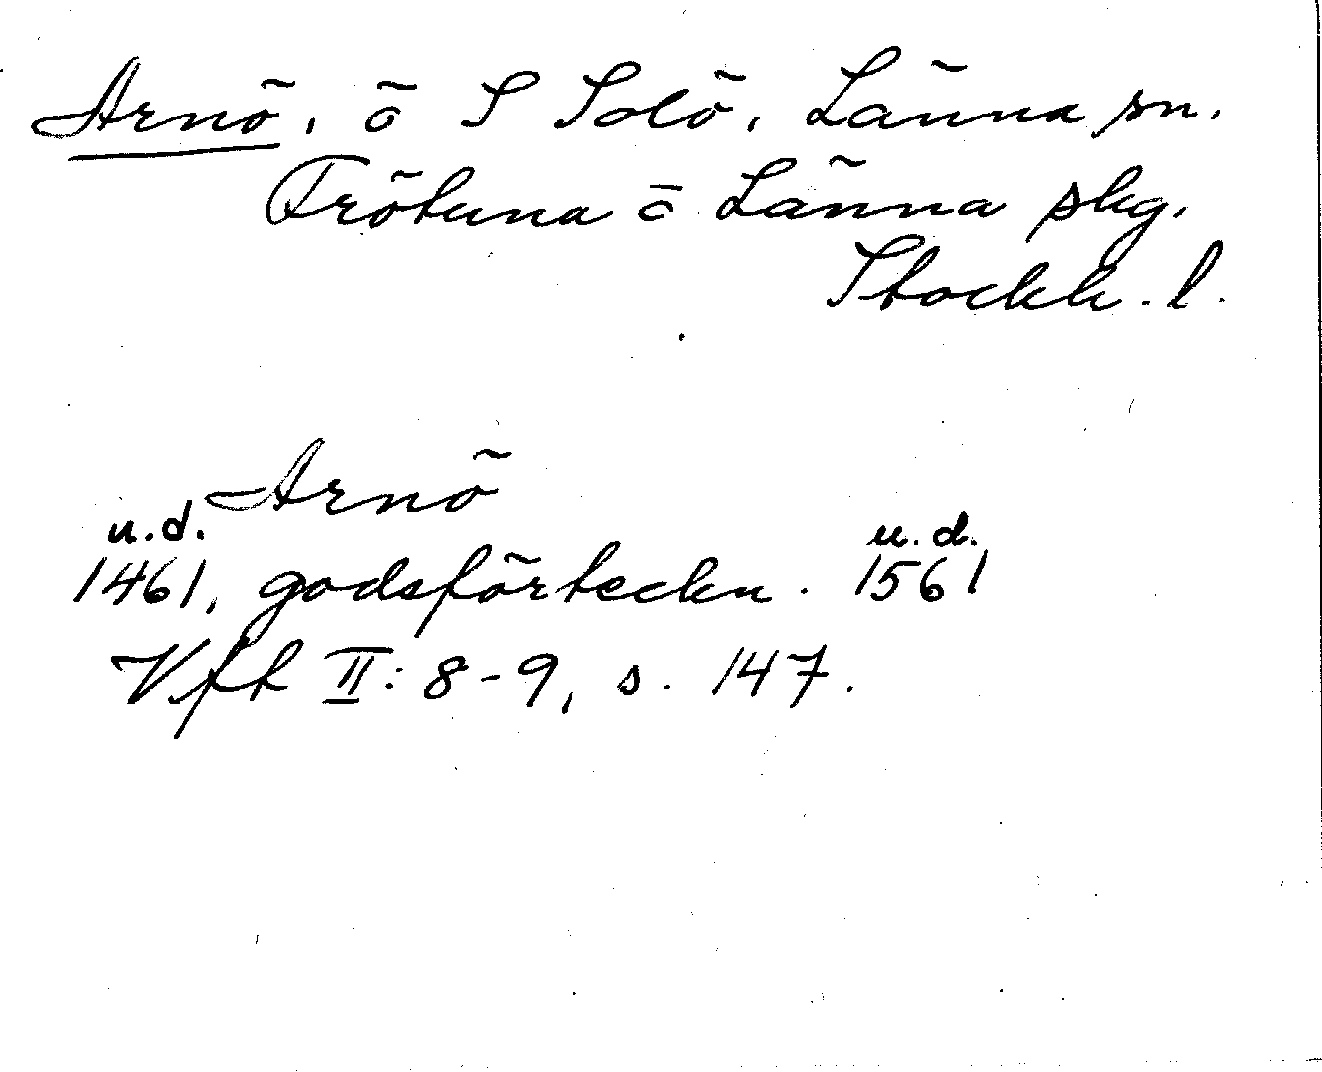 Arnö, ö S Solö, Länna sn.
Frötuna o Länna skg.
Stockh. l.
Arnö
u.d. u.d.
1461, godsförteckn. 1561
Vft II: 8-9, s. 147.